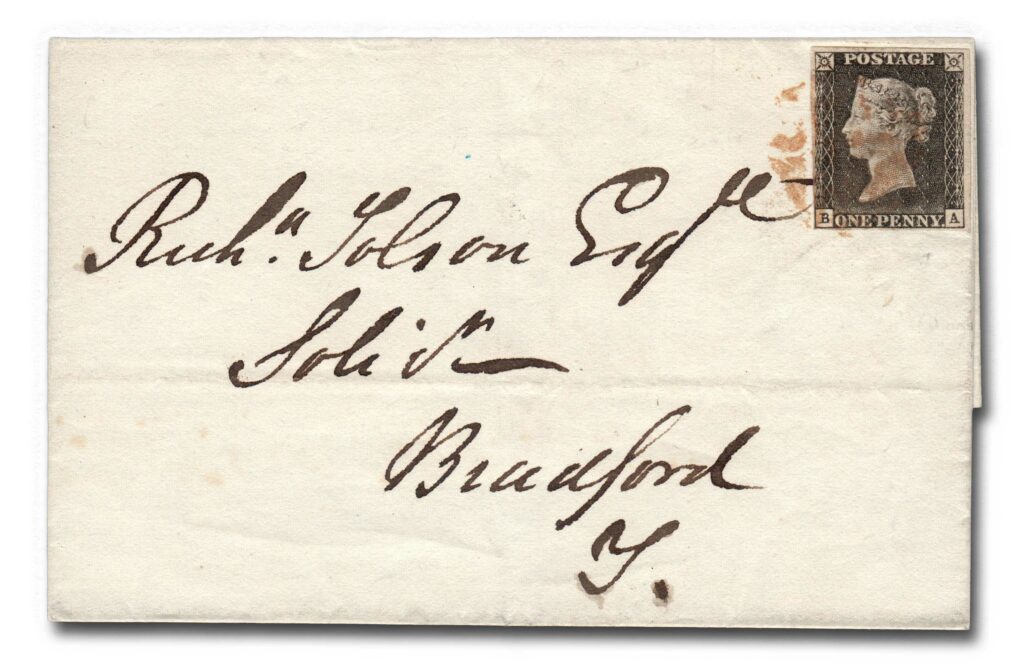 POSTAGE
B ONE PENNY A
Richd. Tolson Esqre
Solicr
Bradford
Y.